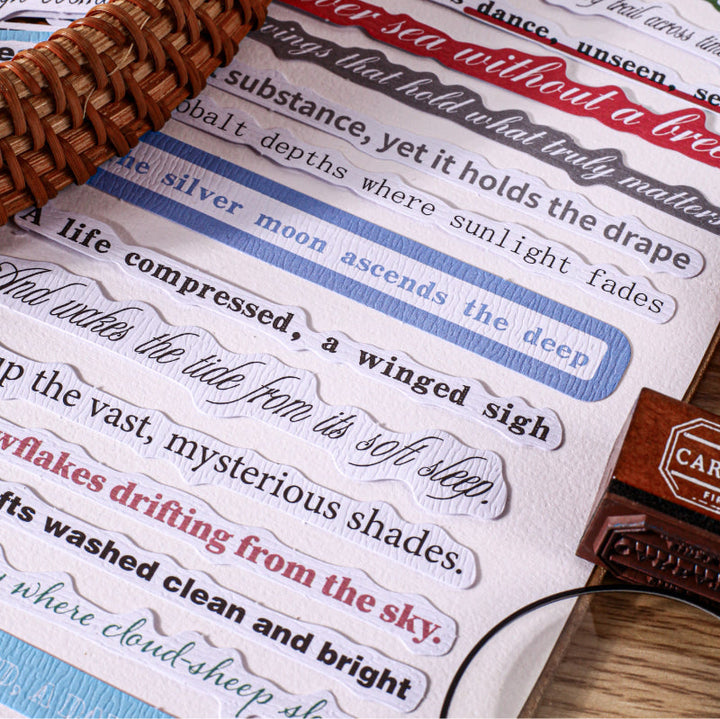 trail across
dance, unseen,
sea without a
that hold what truly matters
substance, yet it holds the drape
depths where sunlight fades
silver moon ascends the deep
A life compressed, a winged sigh
And wakes the tide from its soft sleep.
up the vast, mysterious shades.
drifting from the sky.
washed clean and bright
where cloud-sheep
CAR